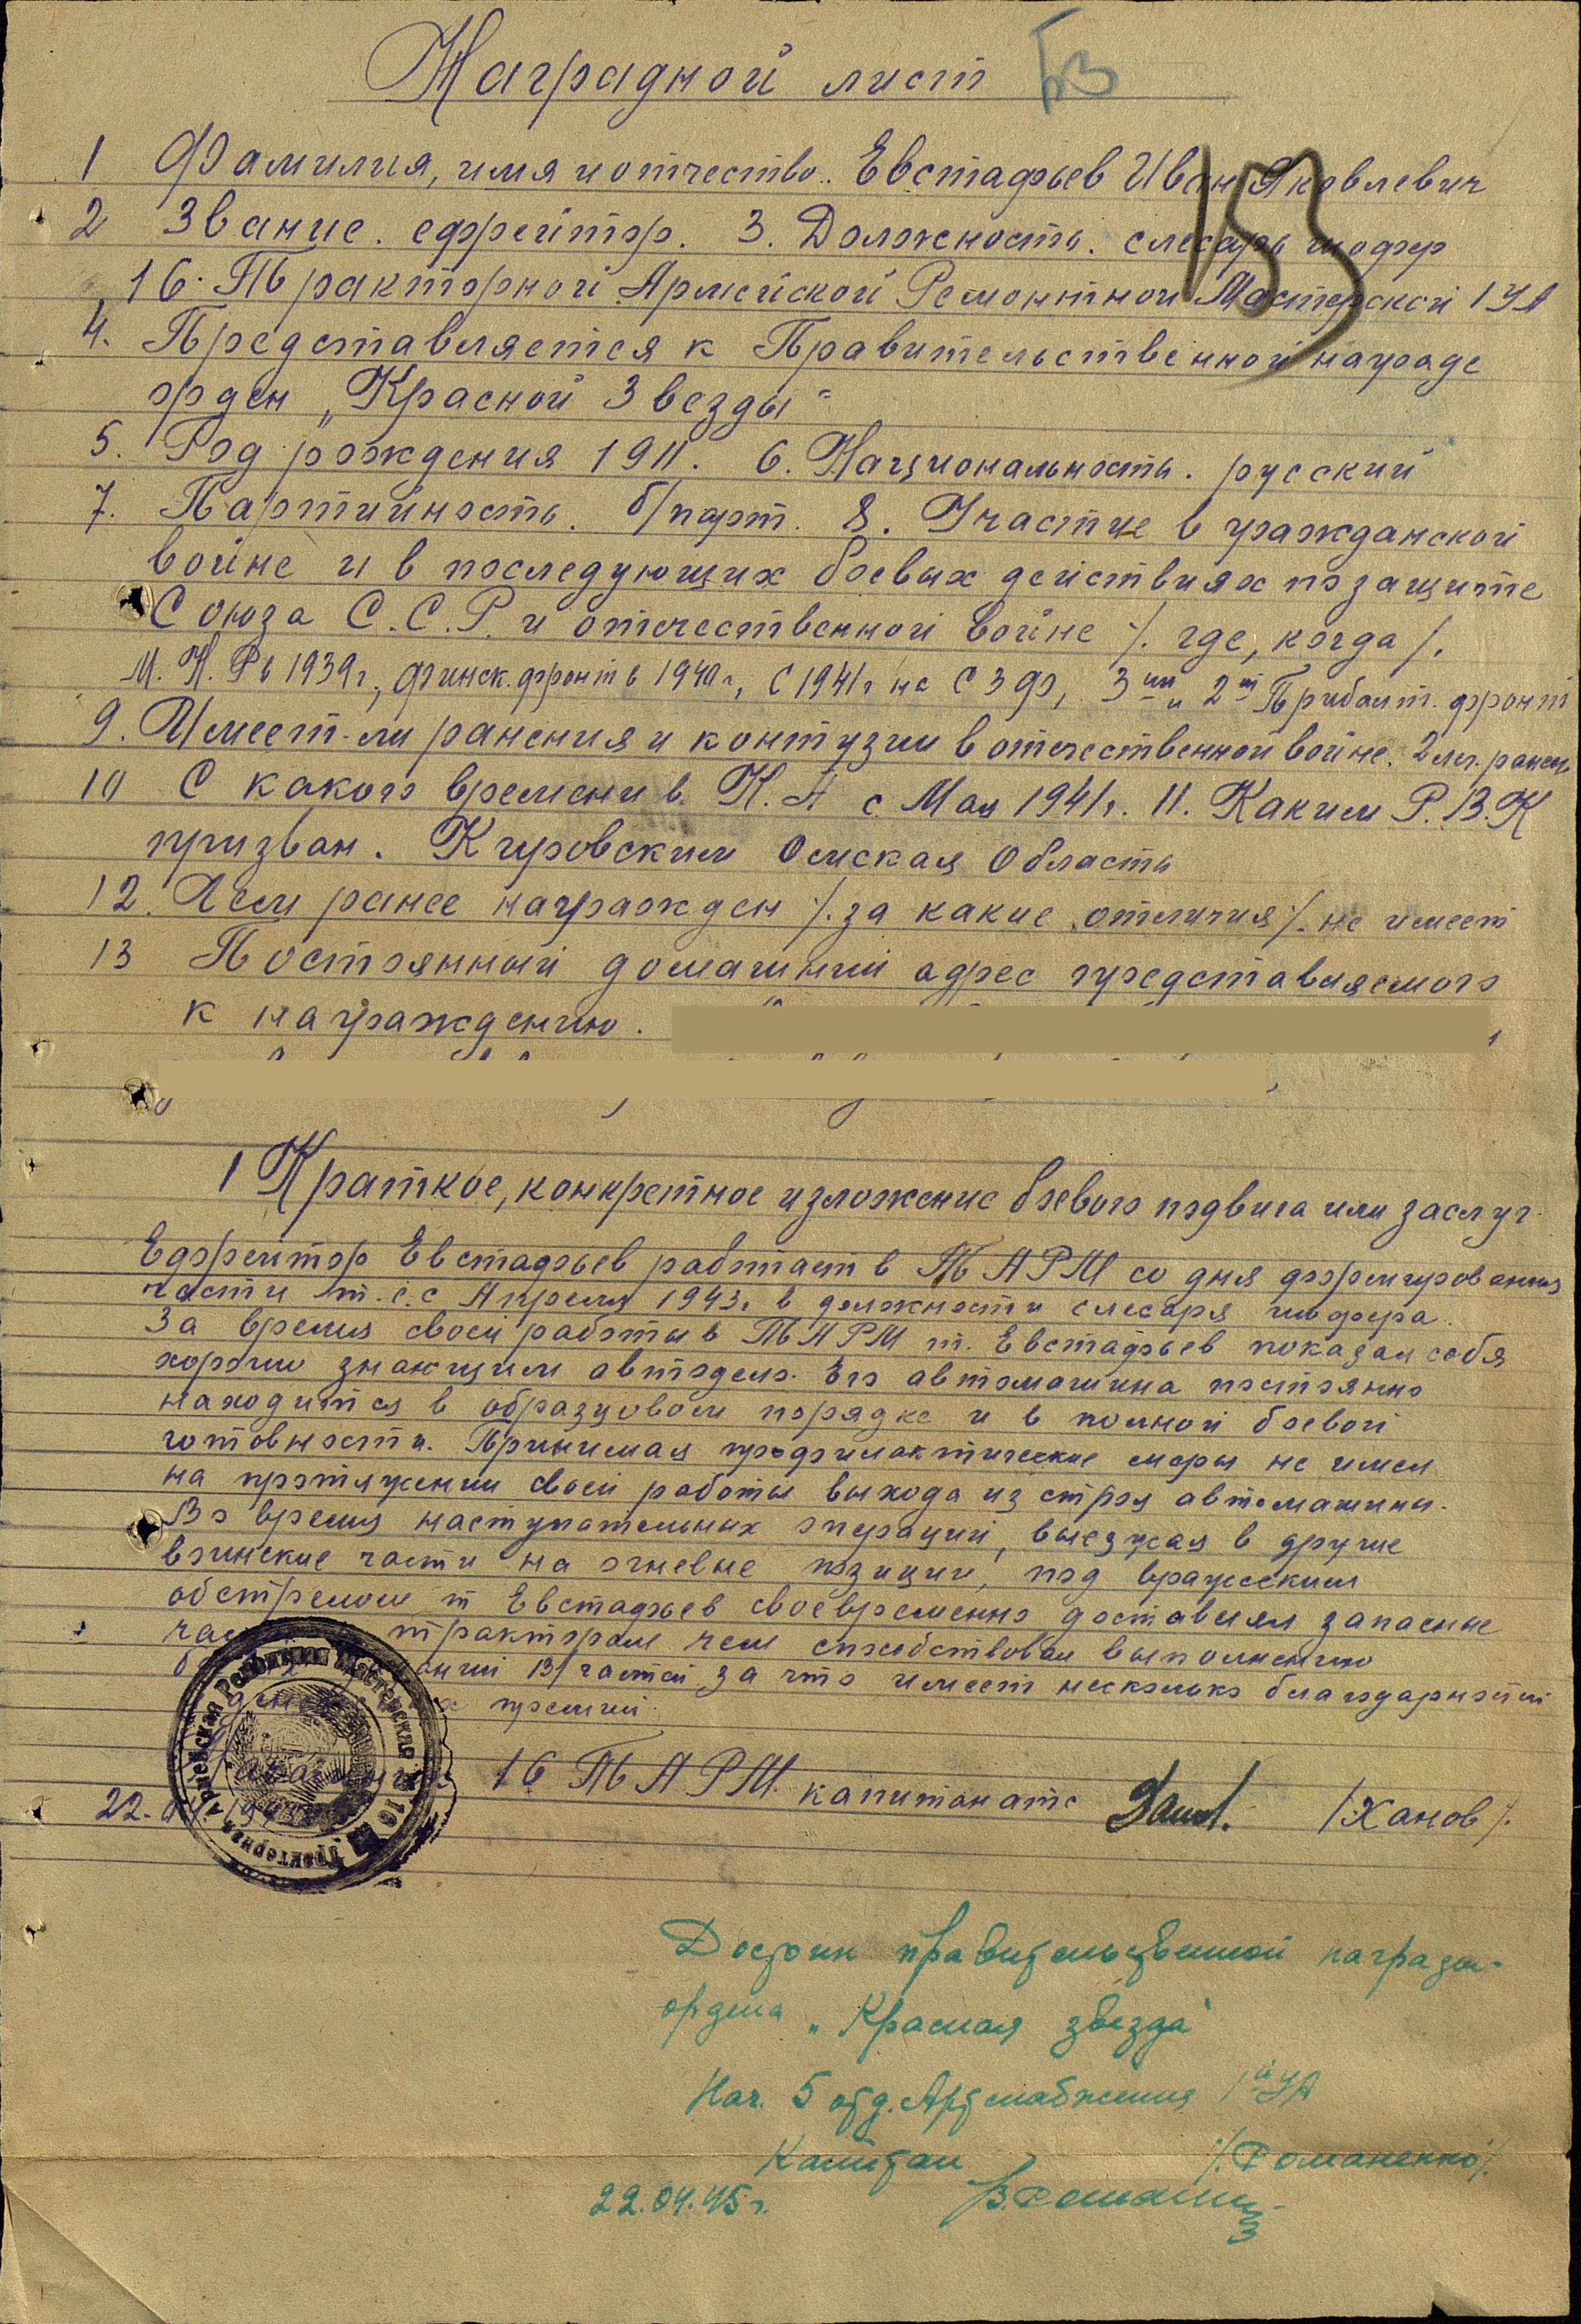 Наградной лист
153
1 Фамилия, имя и отчество. Евстафьев Иван Яковлевич
2 Звание. ефрейтор. 3. Должность. слесарь шофер
16 Тракторной Армейской Ремонтной Мастерской 1 УА
4. Представляется к Правительственной награде
орден „Красной Звезды"
5. Год рождения 1911. 6. Национальность. русский
7. Партийность. б/парт. 8. Участие в гражданской
войне и в последующих боевых действиях по защите
Союза С.С.Р. и отечественной войне /. где, когда /.
М.Н.Р в 1939 г., финск. фронт в 1940 г., с 1941 г на СЗФ, 3им и 2м Прибалт. фронт
9. Имеет-ли ранения и контузии в отечественной войне. 2 лег. ранен
10 С какого времени в К.А с Мая 1941 г. 11. Каким Р.В.К
призван. Кировским Омская Область
12. Чем ранее награжден /. за какие отличия /. не имеет
13 Постоянный домашний адрес представляемого
к награждению.
1 Краткое, конкретное изложение боевого подвига или заслуг.
Ефрейтор Евстафьев работает в ТАРМ со дня формирования
части т.е. с Апреля 1943 г в должности слесаря шофера.
За время своей работы в ТАРМ т. Евстафьев показал себя
хорошо знающим автодело. Его автомашина постоянно
находится в образцовом порядке и в полной боевой
готовности. Принимая профилактические меры не имел
на протяжении своей работы выхода из строя автомашины.
Во время наступательных операций, выезжая в другие
воинские части на огневые позиции, под вражеским
обстрелом т Евстафьев своевременно доставлял запасные
тракторам чем способствовал выполнению
частей за что имеет несколько благодарностей
премий.
16 ТАРМ. капитан /Ханов/.
22.
Армейская Ремонтная Мастерская № 16 Тракторная
Достоин правительственной награды-
ордена „Красная звезда"
Нач. 5 отд. Артснабжения 1й УА
Капитан /. Романенко /.
22.04.45 г.